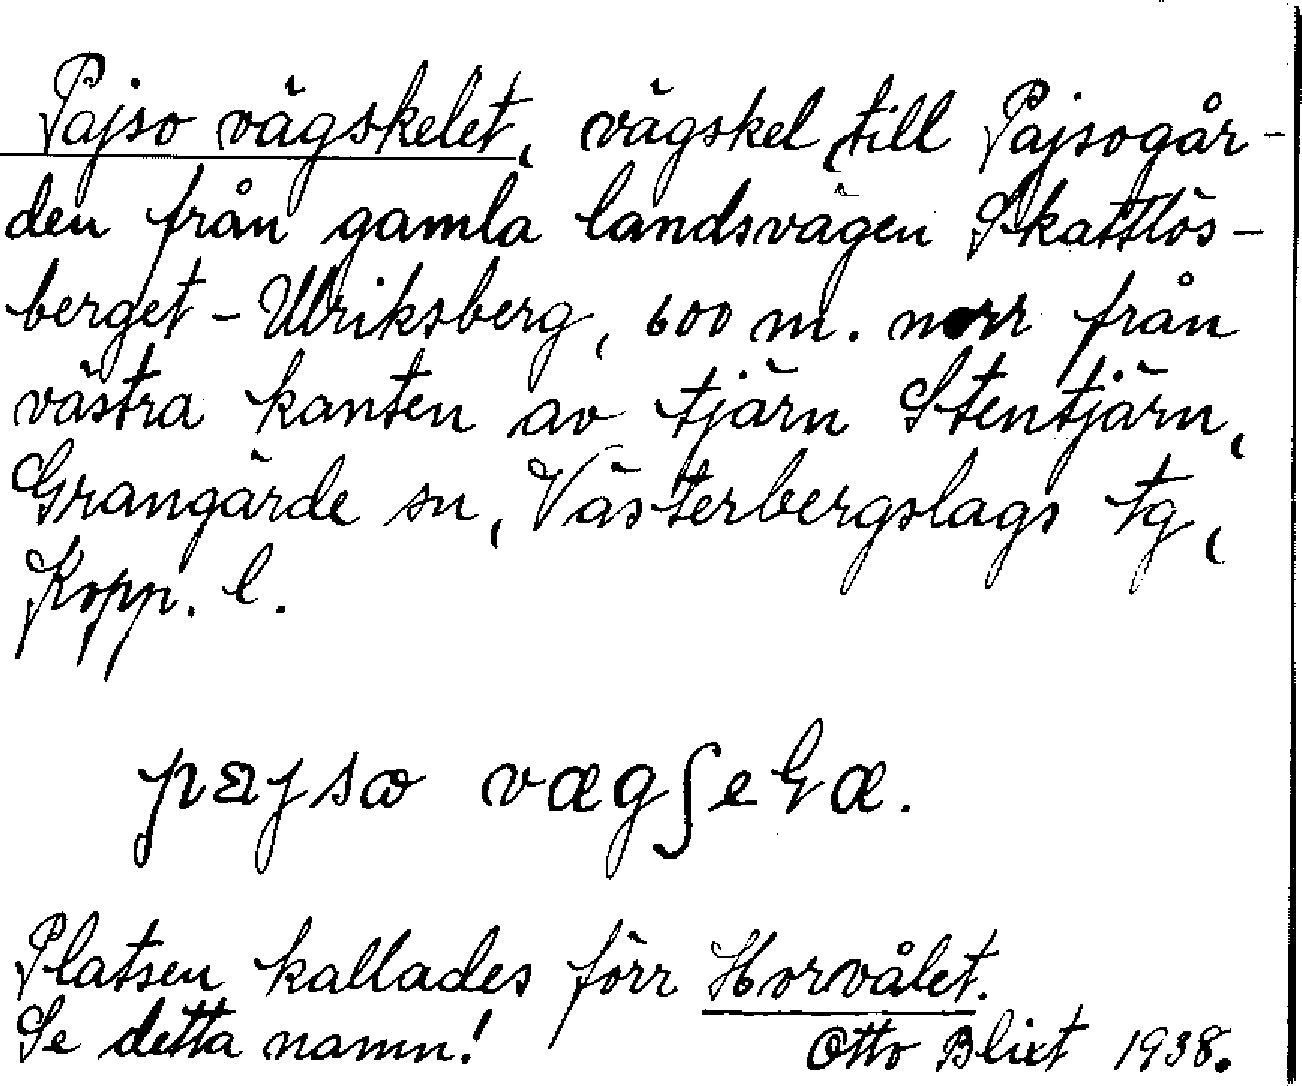 Pajso vägskelet, vägskel till Pajsogår-
den från gamla landsvägen Skattlös-
berget - Ulriksberg, 600 m. norr från
västra kanten av tjärn Stentjärn,
Grangärde sn, Västerbergslags tg,
Kopp. l.
vægʃeɬæ.
Platsen kallades förr Horvålet.
Se detta namn!
Otto Blixt 1938.